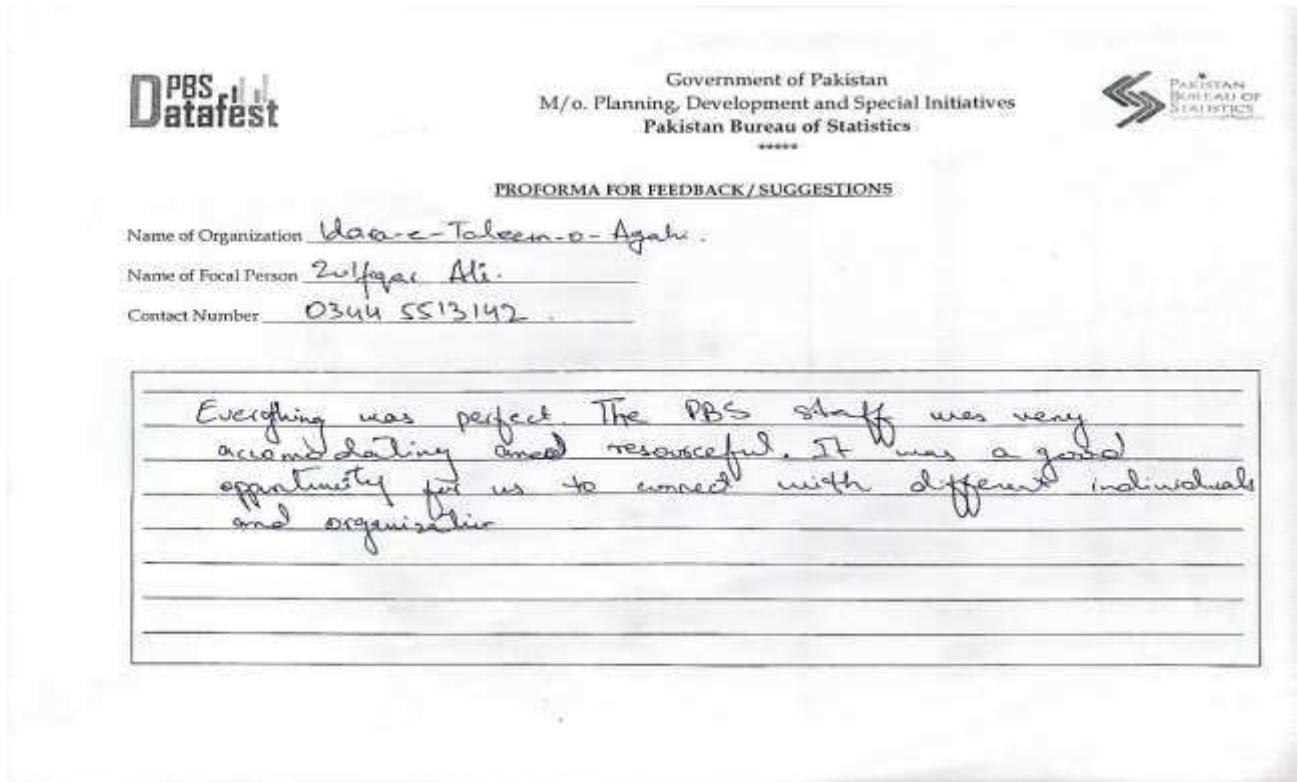 PBS
Datafest
Government of Pakistan
M/o. Planning, Development and Special Initiatives
Pakistan Bureau of Statistics
*****
PAKISTAN
BUREAU OF
STATISTICS
PROFORMA FOR FEEDBACK/SUGGESTIONS
Name of Organization Idara-e-Taleem-o-Agahi.
Name of Focal Person Zulfqar Ali.
Contact Number 0344 5513142.
Everything was perfect. The PBS staff was very
accomodating and resourceful. It was a good
oppurtunity for us to connect with different individuals
and organization